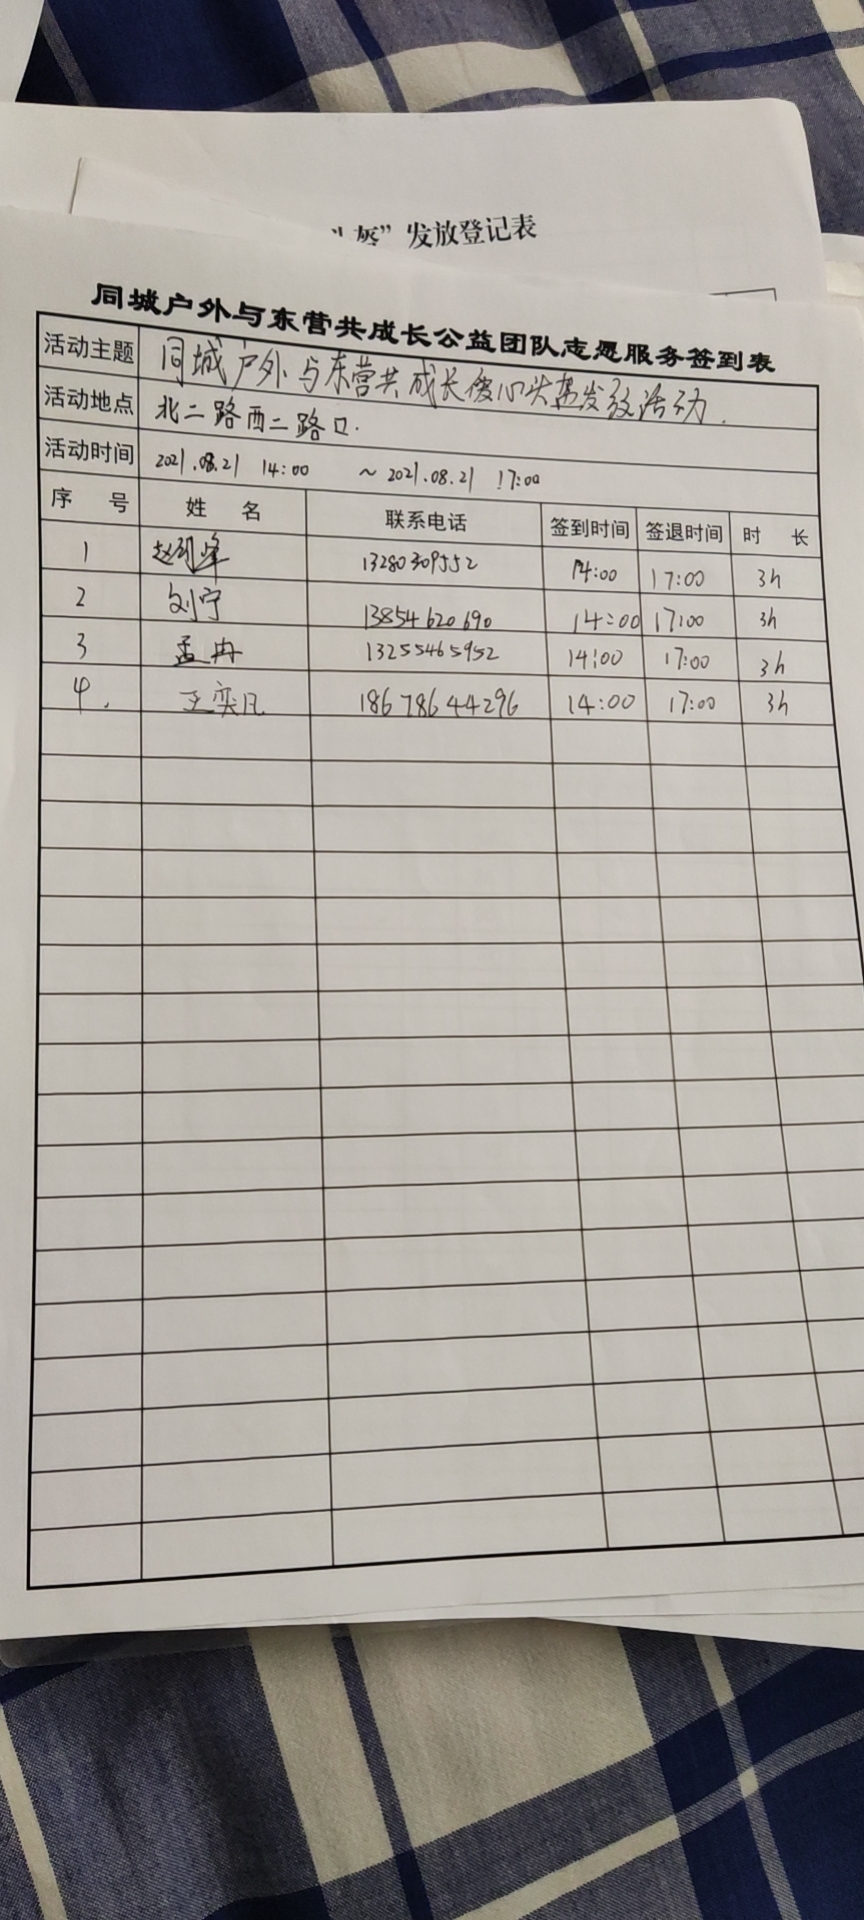 盔”发放登记表
同城户外与东营共成长公益团队志愿服务签到表
活动主题 同城户外与东营共成长暖心头盔发放活动.
活动地点 北二路西二路口.
活动时间 2021.08.21 14:00 ~2021.08.21 17:00
序 号 姓 名 联系电话 签到时间 签退时间 时 长
1 13280309552 14:00 17:00 3h
2 刘宁 13854620690 14:00 17:00 3h
3 孟冉 13255465952 14:00 17:00 3h
4. 王奕凡 18678644296 14:00 17:00 3h